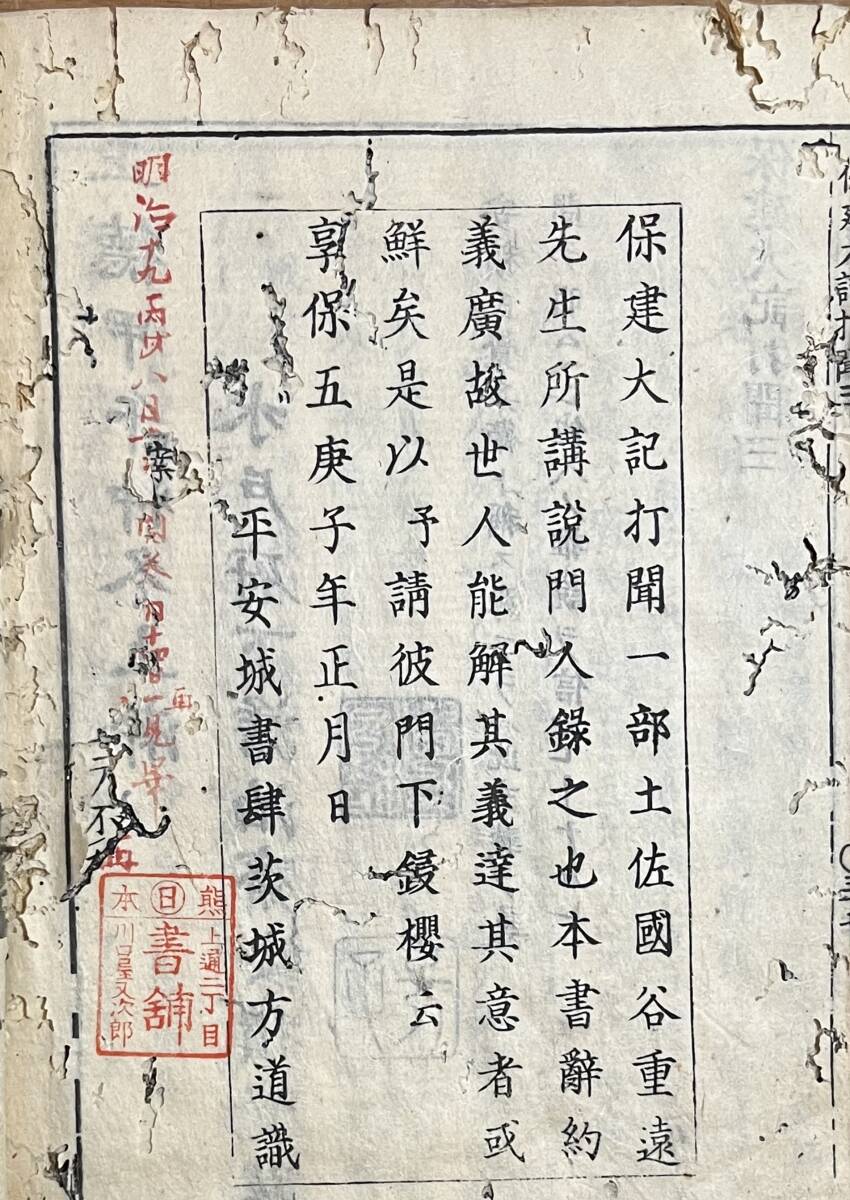 保建大記打聞一部土佐國谷重遠
先生所講說門人錄之也本書辭約
義廣故世人能解其義達其意者或
鮮矣是以予請彼門下鋟櫻云
享保五庚子年正月日
平安城書肆茨城方道識
明治十九丙
八日
一見畢
熊本
上通二丁目
日
書舗
川口屋又次郎